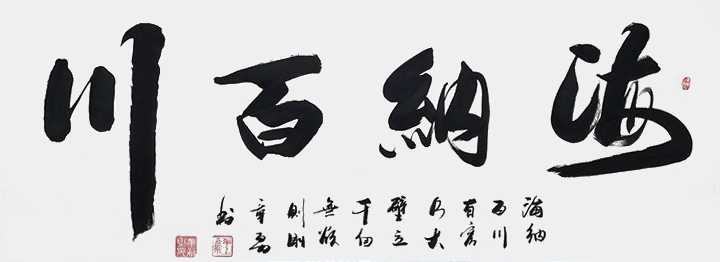 海納百川
海納
百川
有容
乃大
壁立
千仞
無欲
則剛
书